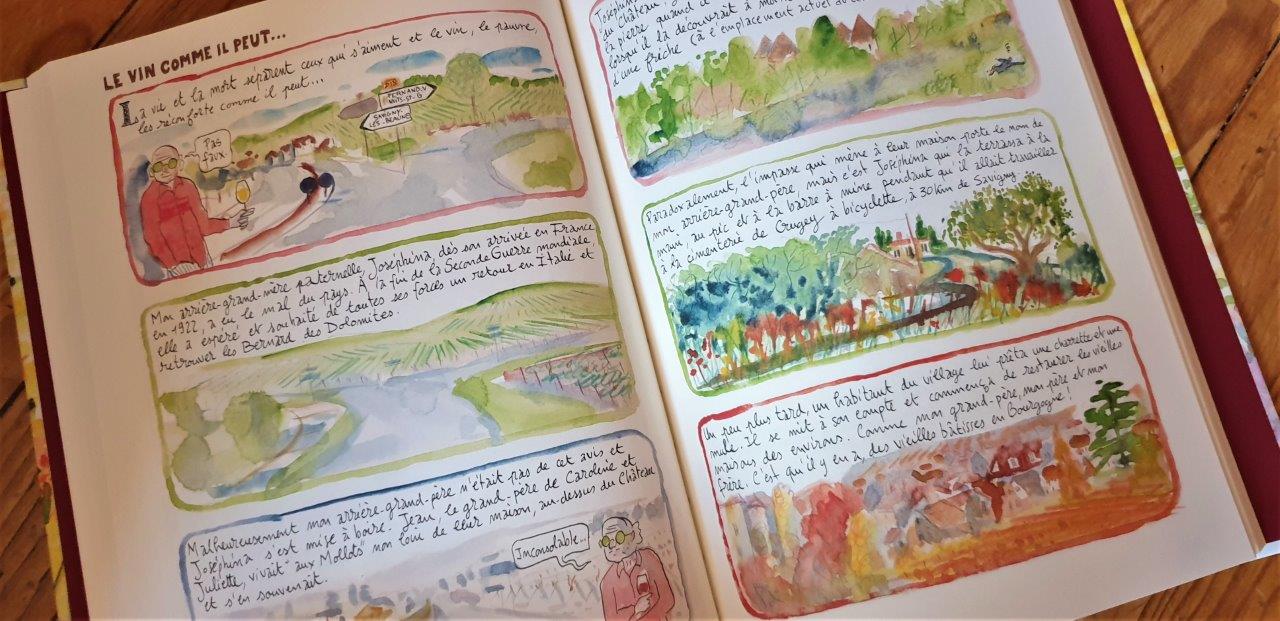 LE VIN COMME IL PEUT...
La vie et la mort séparent ceux qui s'aiment et le vin, le pauvre,
les réconforte comme il peut...
Pas
faux.
D18
PERNAND-V
NUITS-ST-G
SAVIGNY-
LES-BEAUNE
Mon arrière-grand-mère paternelle, Joséphina, dès son arrivée en France
en 1922, a eu le mal du pays. A la fin de la Seconde Guerre mondiale,
elle a espéré et souhaité de toutes ses forces un retour en Italie et
retrouver les Bernard des Dolomites.
Malheureusement mon arrière-grand-père n'était pas de cet avis et
Joséphina s'est mise à boire. Jean, le grand-père de Caroline et
Juliette, vivait "aux Mollots" non loin de leur maison, au-dessus du Château
et s'en souvenait.
Inconsolable...
Joséphina
du Château
la pierre quand
lorsqu'il la découvrait à
d'une friche (à l'emplacement actuel du
Paradoxalement, l'impasse qui mène à leur maison porte le nom de
mon arrière-grand-père, mais c'est Joséphina qui la terrassa à la
main, au pic et à la barre à mine pendant qu'il allait travailler
à la cimenterie de Crugey à bicyclette, à 30 Km de Savigny.
Un peu plus tard, un habitant du village lui prêta une charrette et une
mule. Il se mit à son compte et commença de restaurer les vieilles
maisons des environs. Comme mon grand-père, mon père et mon
frère. C'est qu'il y en a, des vieilles bâtisses en Bourgogne !